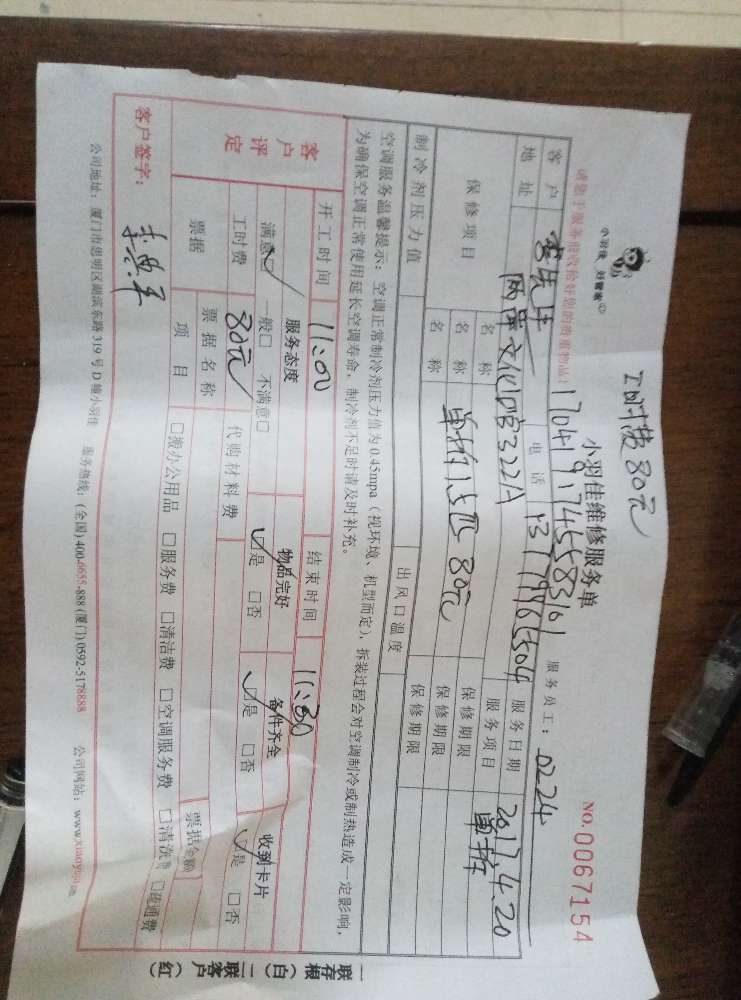 工时费80元
小羽佳 好管家
小羽佳维修服务单
NO.0067154
请您于服务前收检好您的贵重物品!
服务员工: 0224
客户 电话 服务日期 2017.4.20
地址 322A 服务项目 单拆
保修项目 名称 保修期限
名称 单拆1.5匹 80元 保修期限
名称 保修期限
制冷剂压力值 出风口温度
空调服务温馨提示: 空调正常制冷剂压力值为0.45mpa(视环境、机型而定),拆装过程会对空调制冷或制热造成一定影响,
为确保空调正常使用延长空调寿命,制冷剂不足时请及时补充。
开工时间 11:00 结束时间 11:30
客户评定 服务态度 物品完好 备件齐全 收到卡片
满意☑ 一般□ 不满意□ ☑是 □否 ☑是 □否 ☑是 □否
工时费 80元 代购材料费
票据 票据名称 票据金额
项目 □搬办公用品 □服务费 □清洁费 □空调服务费 □清洗费 □疏通费
客户签字:
公司地址: 厦门市思明区湖滨东路319号D幢小羽佳 服务热线: (全国)400-6655-888 (厦门)0592-5178888 公司网站: www.xiaoyujia.cn
一联存根(白) 二联客户(红)